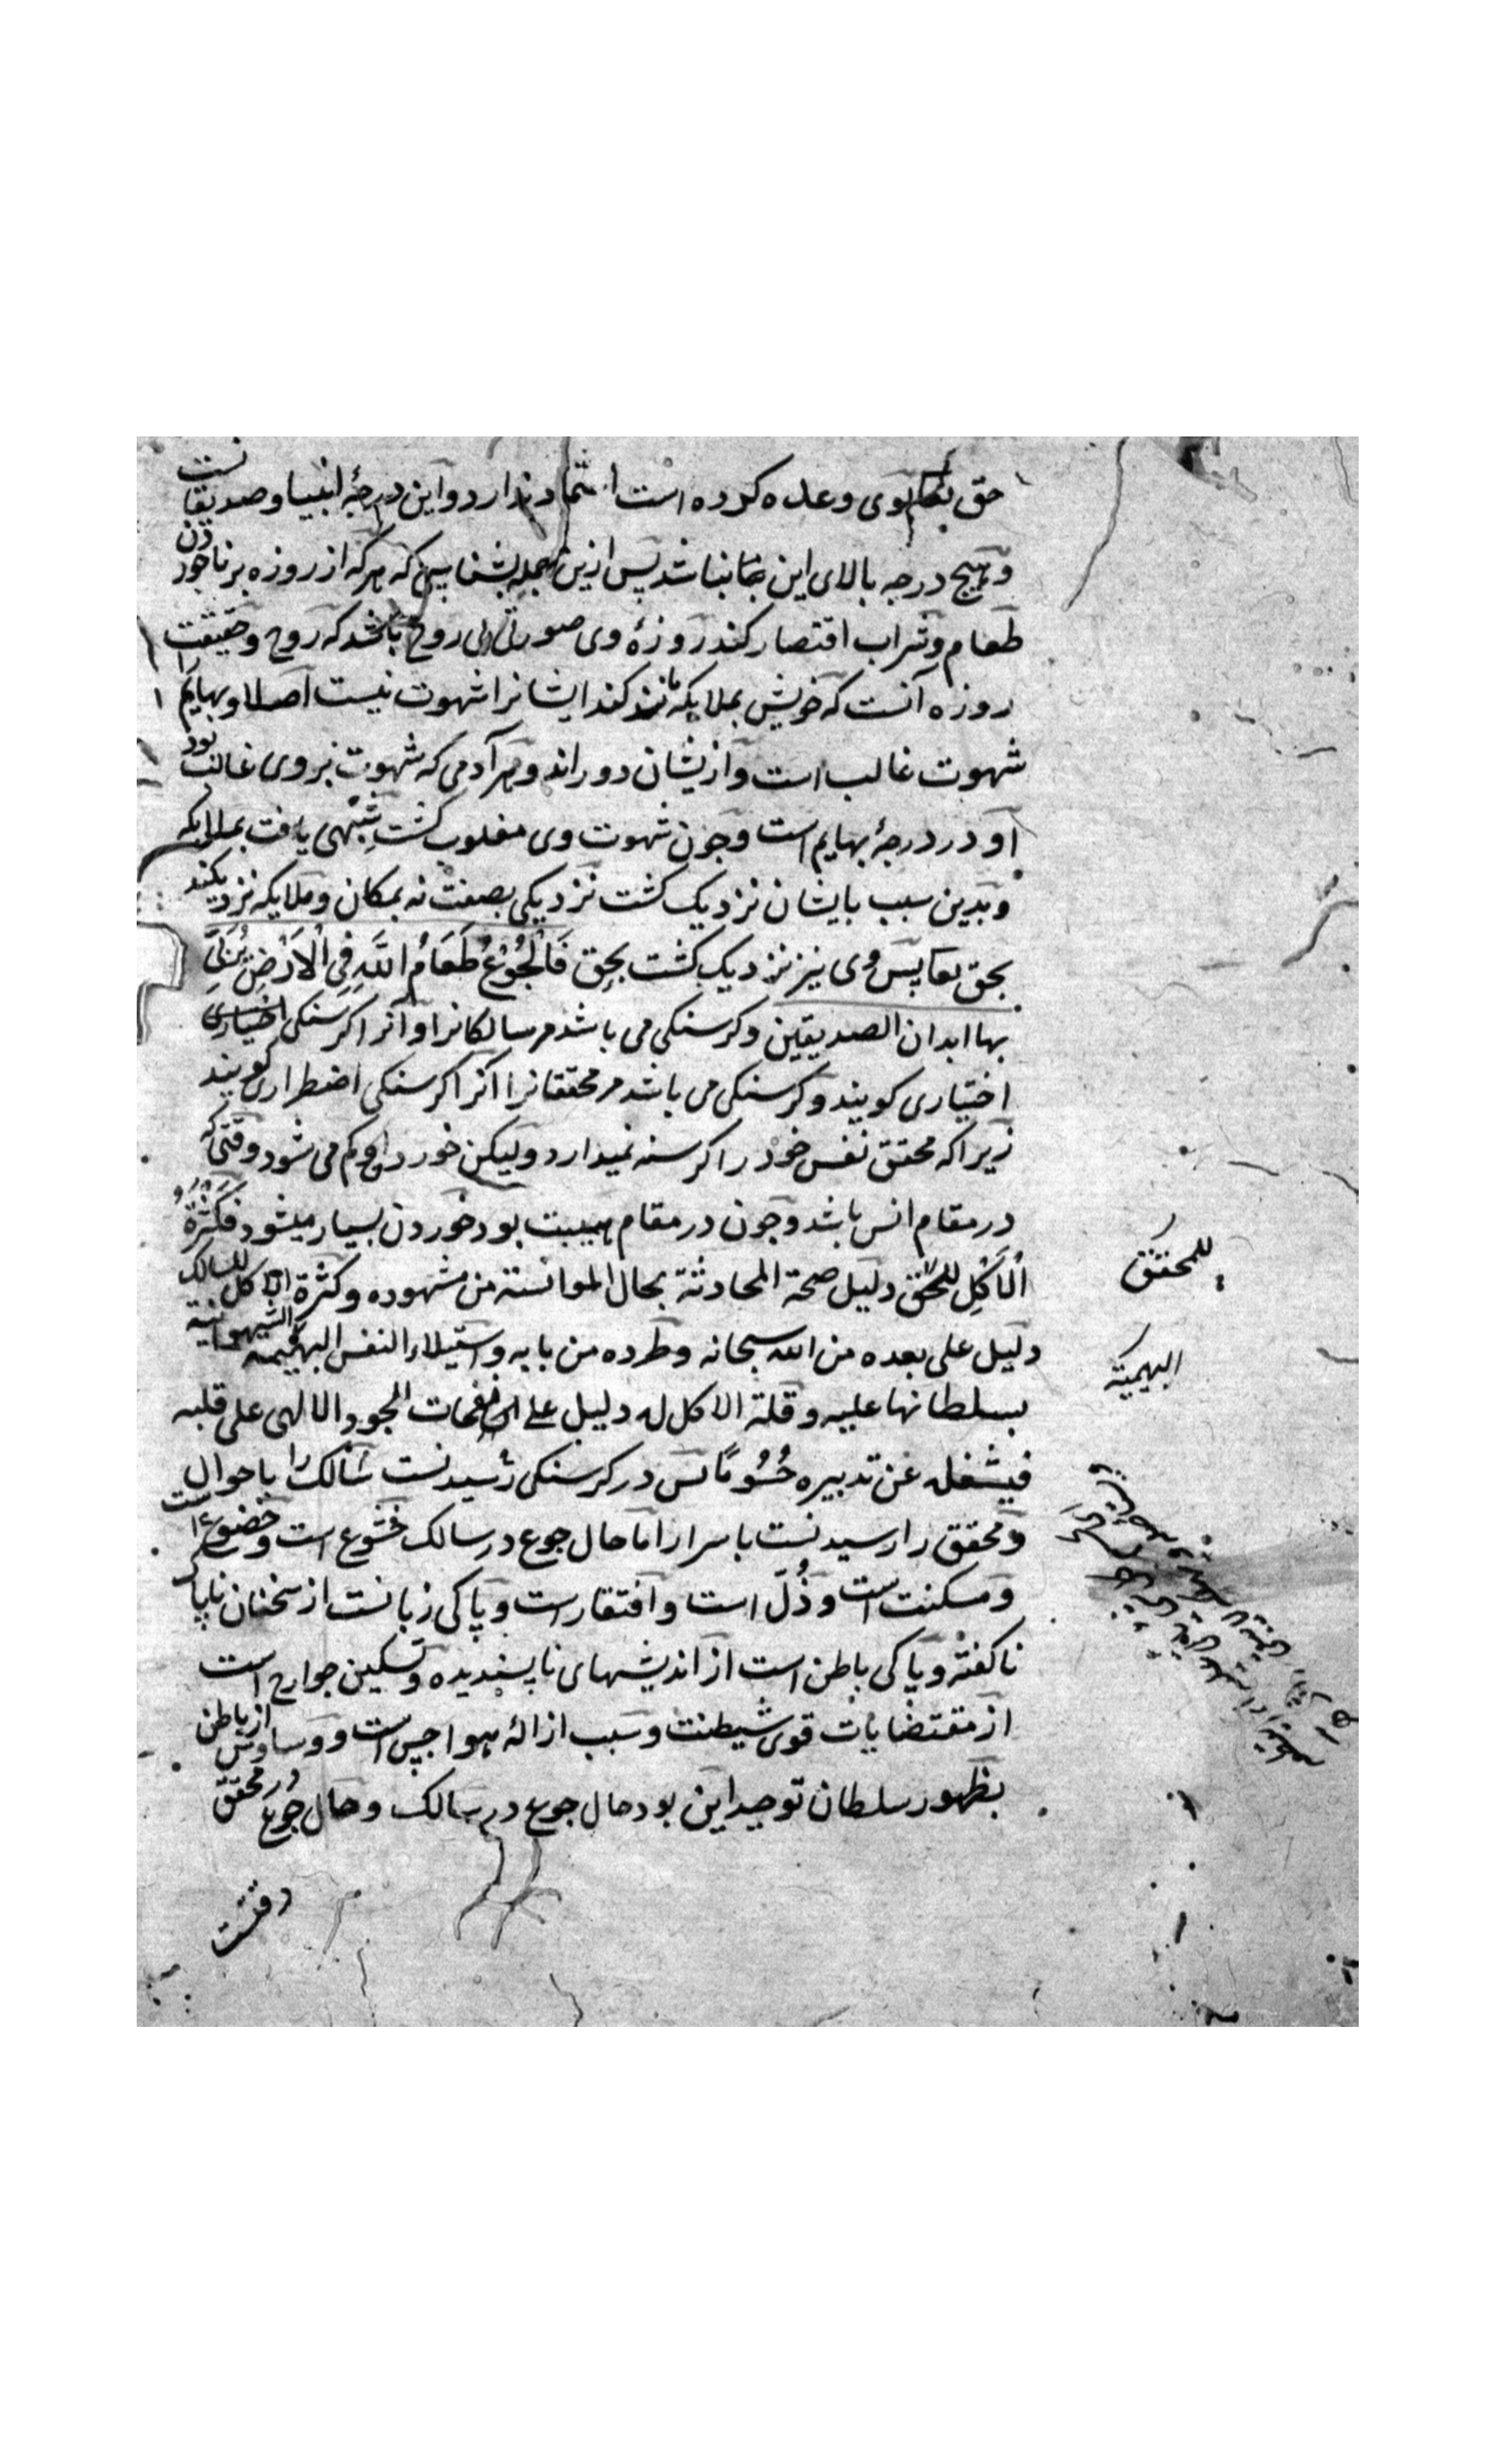 حق تعالی بوی وعده کرده است اعتماد ندارد و این درجهٔ انبیا و صدیقانست
و هیچ درجه بالای این نباشد پس ازین جمله بشناسی که هرکه از روزه برناخوردن
طعام و شراب اقتصار کند روزهٔ وی صورتی بی روح باشد که روح و حقیقت
روزه آنست که خویش بملایکه مانند کند ایشانرا شهوت نیست اصلا و بهایم را
شهوت غالب است و ازیشان دوراند و هر آدمی که شهوت بر وی غالب بود
او در درجهٔ بهایم است و جون شهوت وی مغلوب کشت شبهی یافت بملایکه
و بدین سبب بایشان نزدیک کشت نزدیکی بصفت نه بمکان و ملایکه نزدیکند
بحق تعا پس وی نیز نزدیک کشت بحق فَالْجُوْعُ طَعَامُ اللَّهِ فِي الْاَرْضِ
بها ابدان الصدیقین و کرسنکی می باشد مر سالکانرا و آنرا کرسنکی اختیاری
اختیاری کویند و کرسنکی می باشد مر محققانرا آنرا کرسنکی اضطراری کویند
زیرا که محقق نفس خود را کرسنه نمیدارد ولیکن خورد او کم می شود وقتی که
در مقام انس باشد و جون در مقام هیبت بود خوردن بسیار میشود فَكَثْرَةُ
الْاَكْلِ للمحقق دلیل صحة المحادثة بحال الموانسة من مشهوده و كثرة الاكل للسالك
دلیل علی بعده من الله سبحانه و طرده من بابه و استیلاء النفس البهیمیه الشهوانیة
بسلطانها علیه و قلة الاكل له دلیل علی نفحات الجود الالهی علی قلبه
فیشغله عن تدبیره جُسُومًا پس در کرسنکی رسیدنست سالک را باحوال
و محقق را رسیدنست باسرار اما حال جوع در سالک خشوع است و خضوع است
و مسکنت است و ذُلّ است و افتقار است و پاکی زبانست از سخنان ناپاک
ناکفتنی و پاکی باطن است از اندیشهای ناپسندیده و تسکین جوارح است
از مقتضایات قوی شیطنت و سبب ازالهٔ هواجس است و وساوس از باطن
بظهور سلطان توحید این بود حال جوع در سالک و حال جوع در محقق
للمحقق
البهیمیة